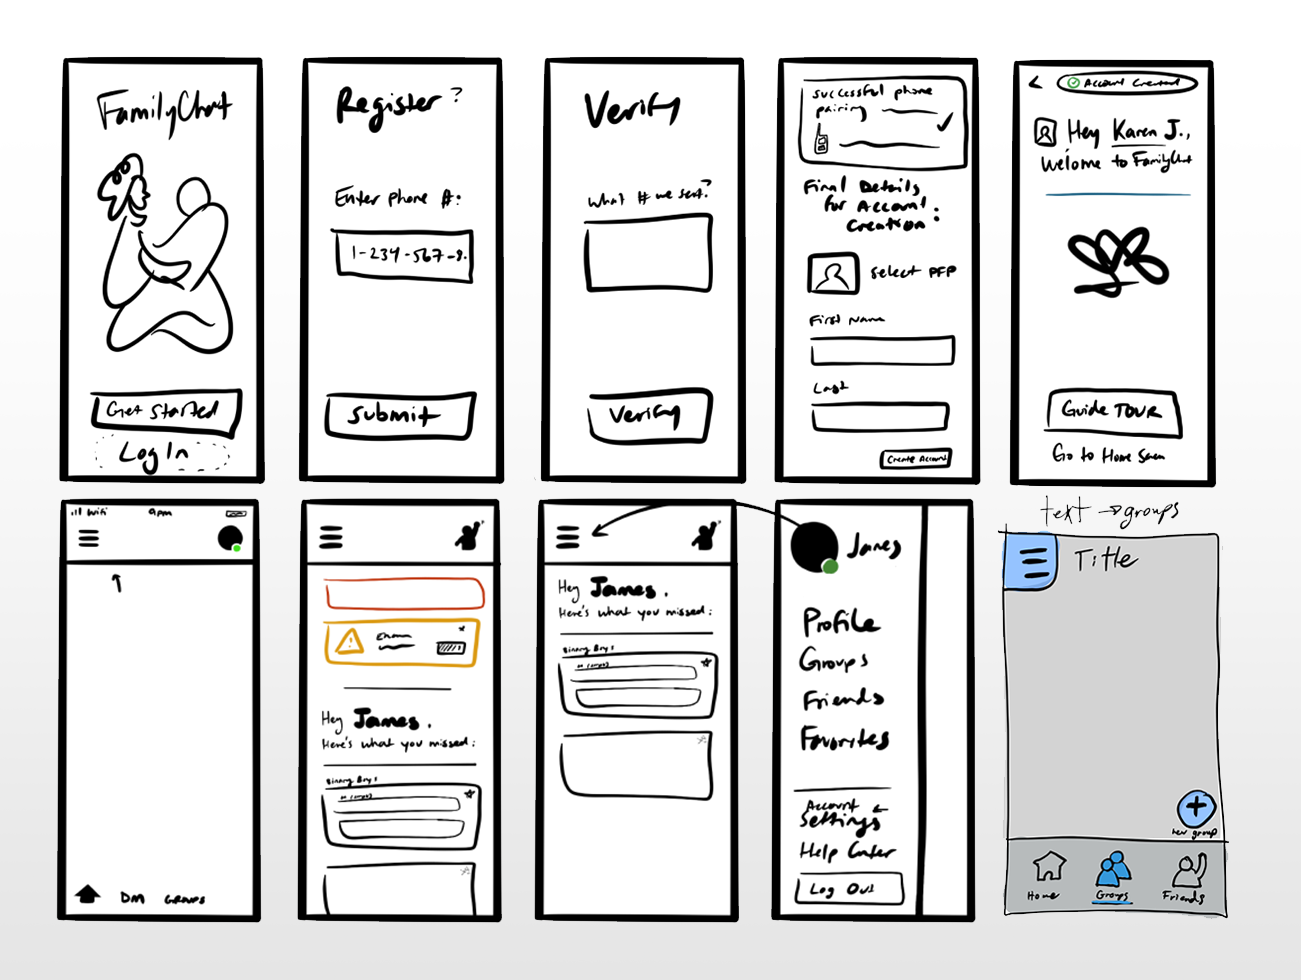 FamilyChat
Get Started
Log In
Register?
Enter phone #:
1-234-567-8.
Submit
Verify
What # we sent?
Verify
Successful phone
pairing
Final Details
for Account
Creation:
Select PFP
First Name
Last
Create Account
Account Created
Hey Karen J.,
Welcome to FamilyChat
Guide TOUR
Go to Home Screen
Wifi
9pm
DM
GROUPS
Hey James.
Here's what you missed:
Binary Boys
Hey James.
Here's what you missed:
Binary Boys
James
Profile
Groups
Friends
Favorites
Account
Settings
Help Center
Log Out
text → groups
Title
new group
Home
Groups
Friends